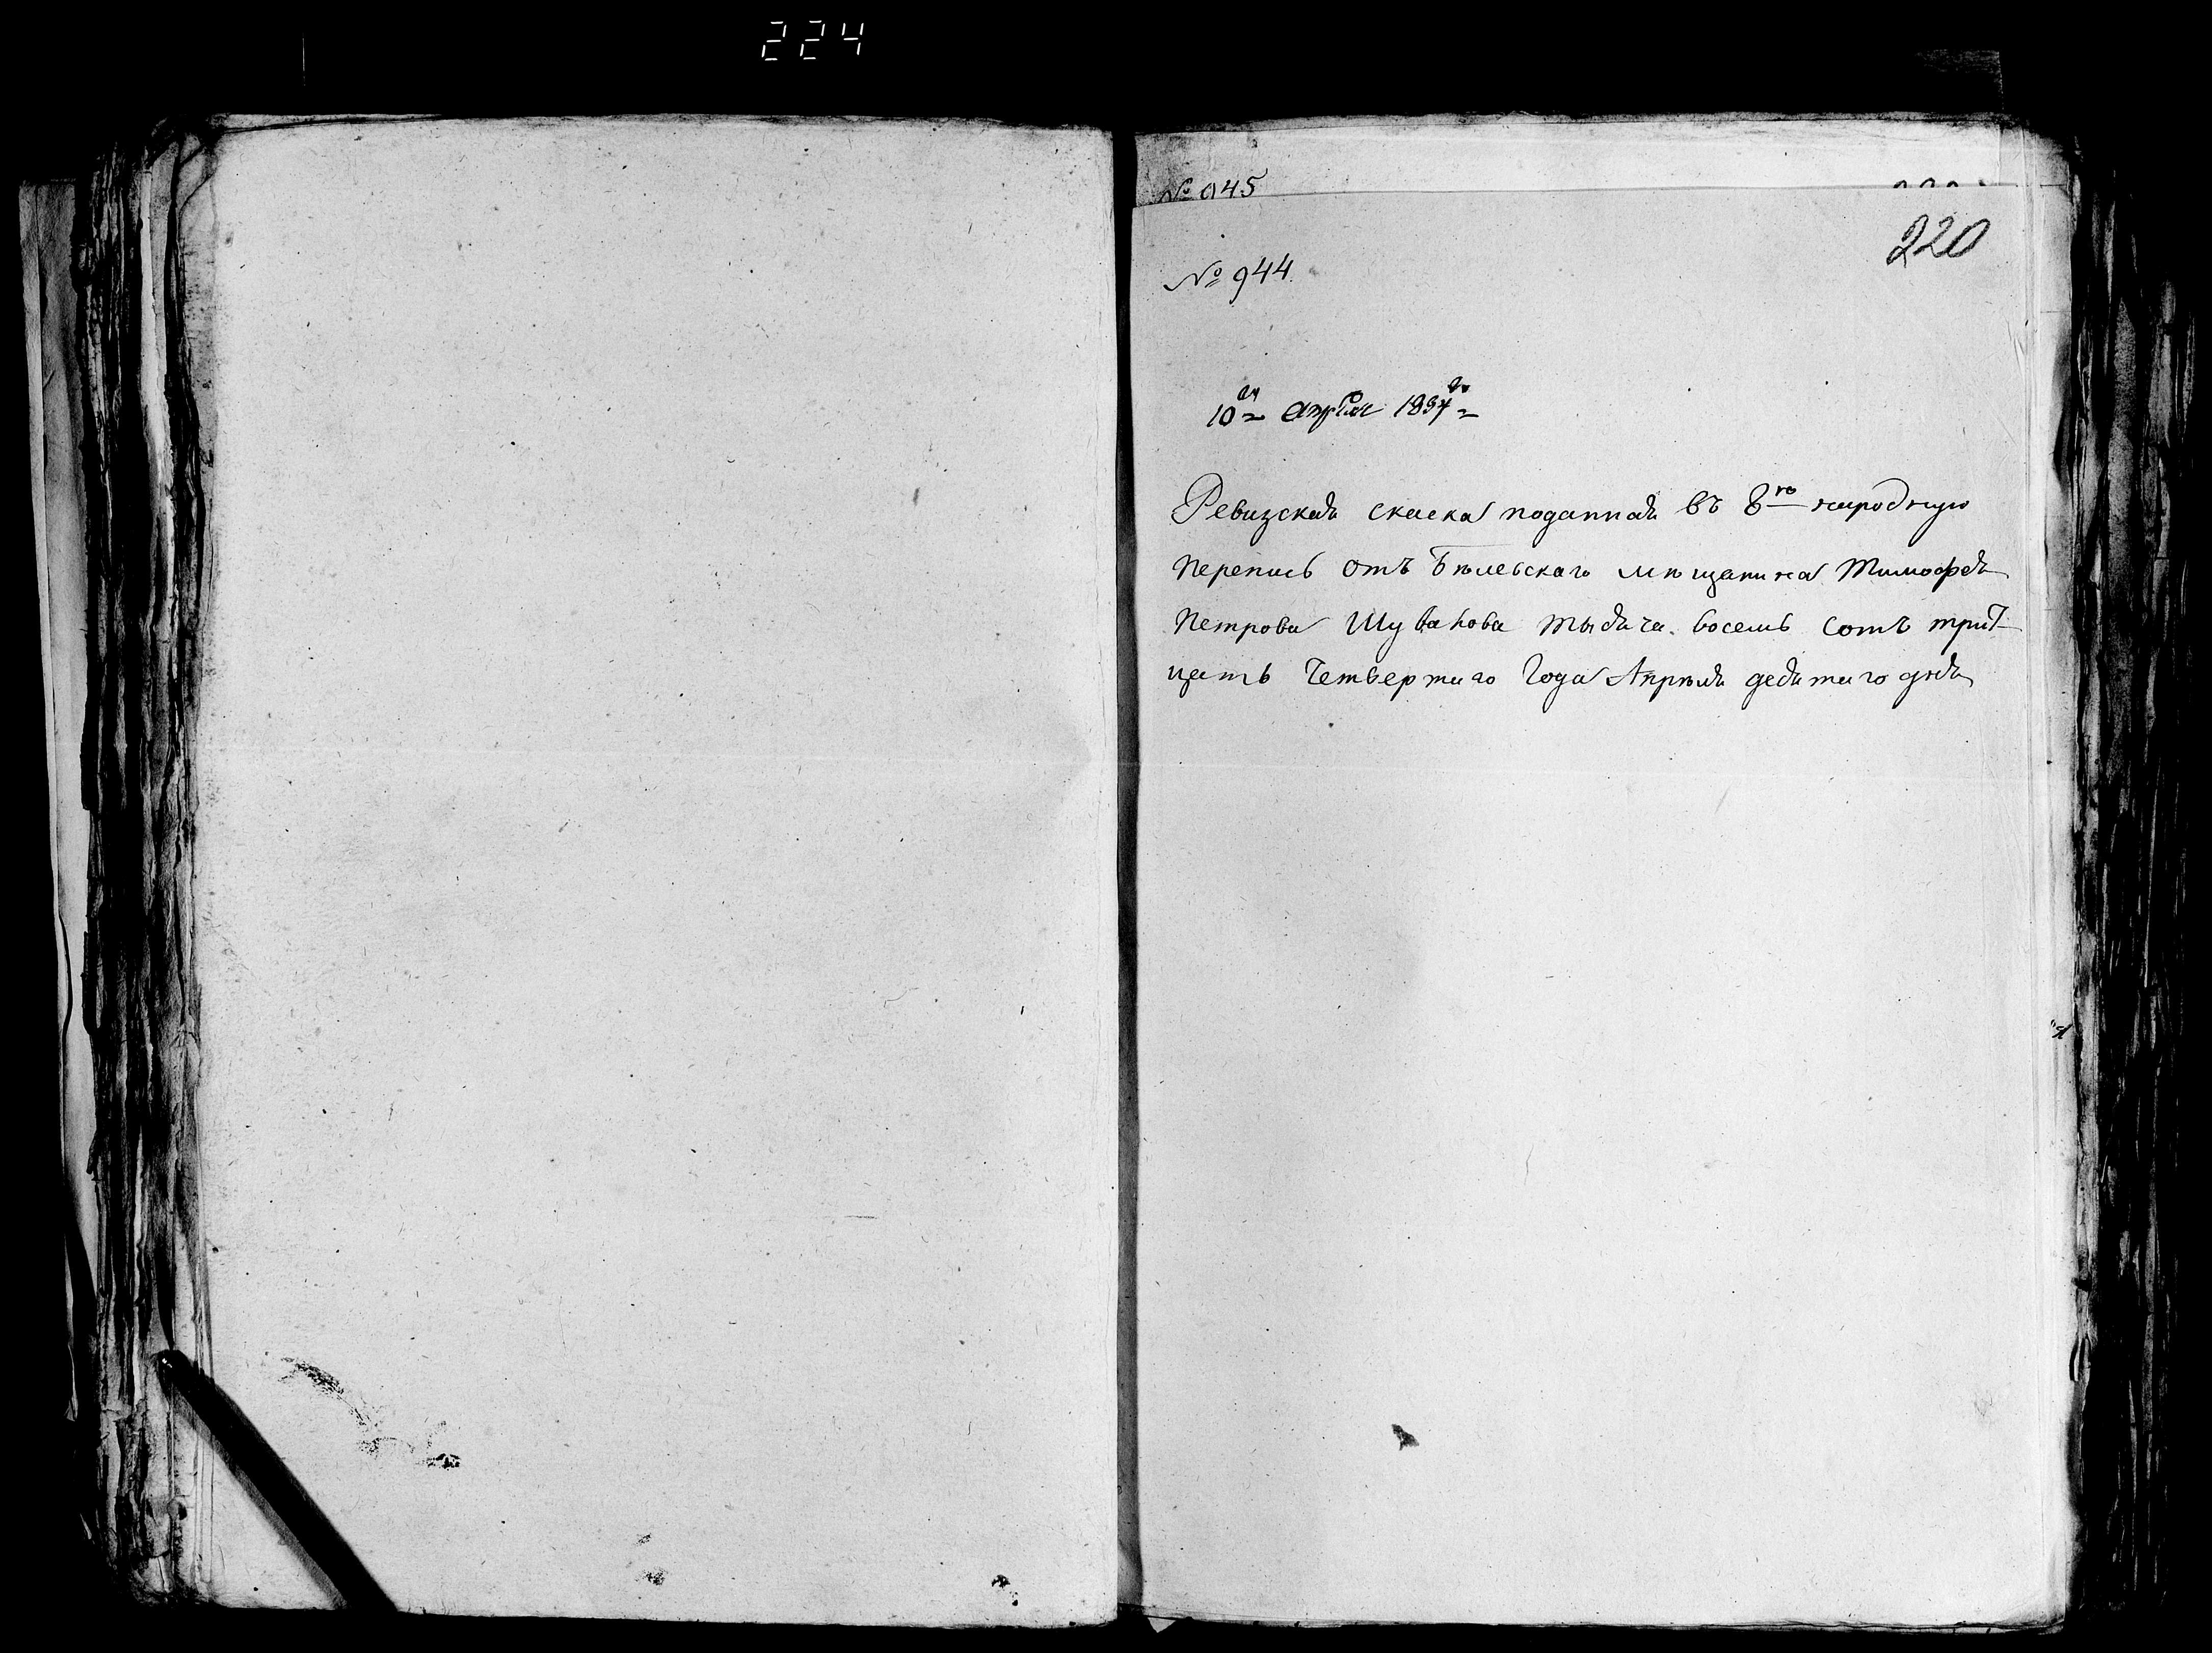 224
№ 945
220
№ 944.
10го апреля 1834го
Ревизская скаска поданная въ 8ю народную
перепись отъ Бѣлевскаго мѣщанина Тимофея
Петрова Шувакова тысяча восемь сотъ трит-
цеть Четвертаго Года Апрѣля десятаго дня